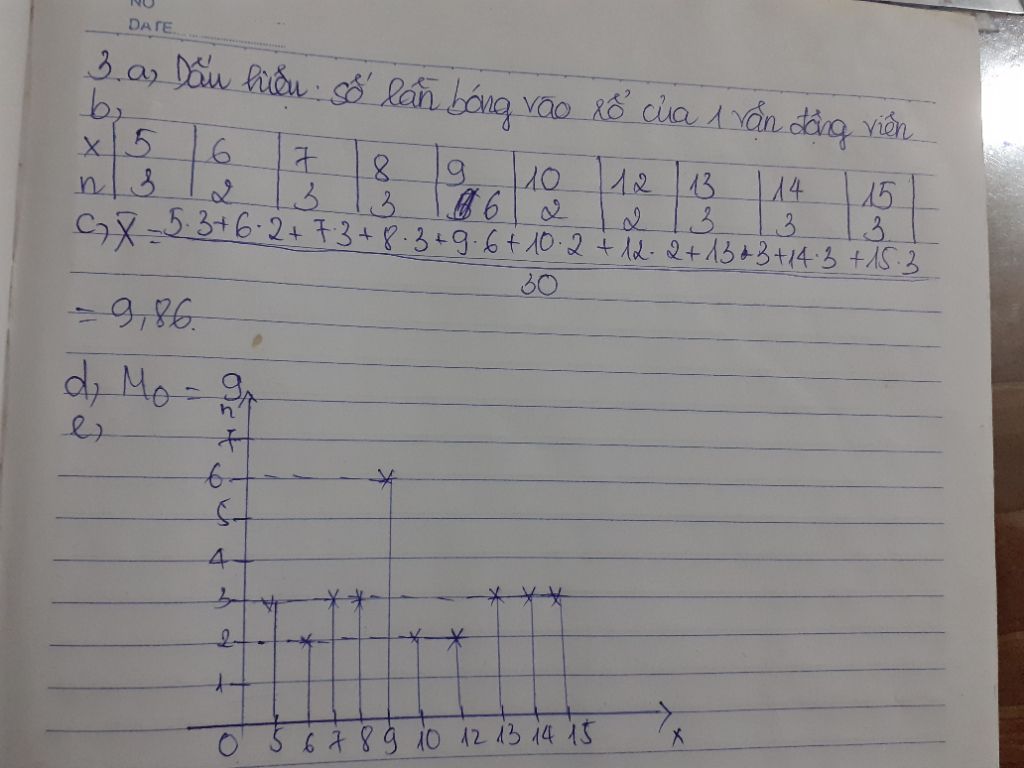 NO
DATE
3. a, Dấu hiệu: số lần bóng vào rổ của 1 vận động viên
b,
x | 5 | 6 | 7 | 8 | 9 | 10 | 12 | 13 | 14 | 15 |
n | 3 | 2 | 3 | 3 | 6 | 2 | 2 | 3 | 3 | 3 |
c, X̄ = 5·3+6·2+7·3+8·3+9·6+10·2+12·2+13·3+14·3+15·3
30
= 9,86.
d, M0 = 9
e,
n
7
6
5
4
3
2
1
0 5 6 7 8 9 10 12 13 14 15 x